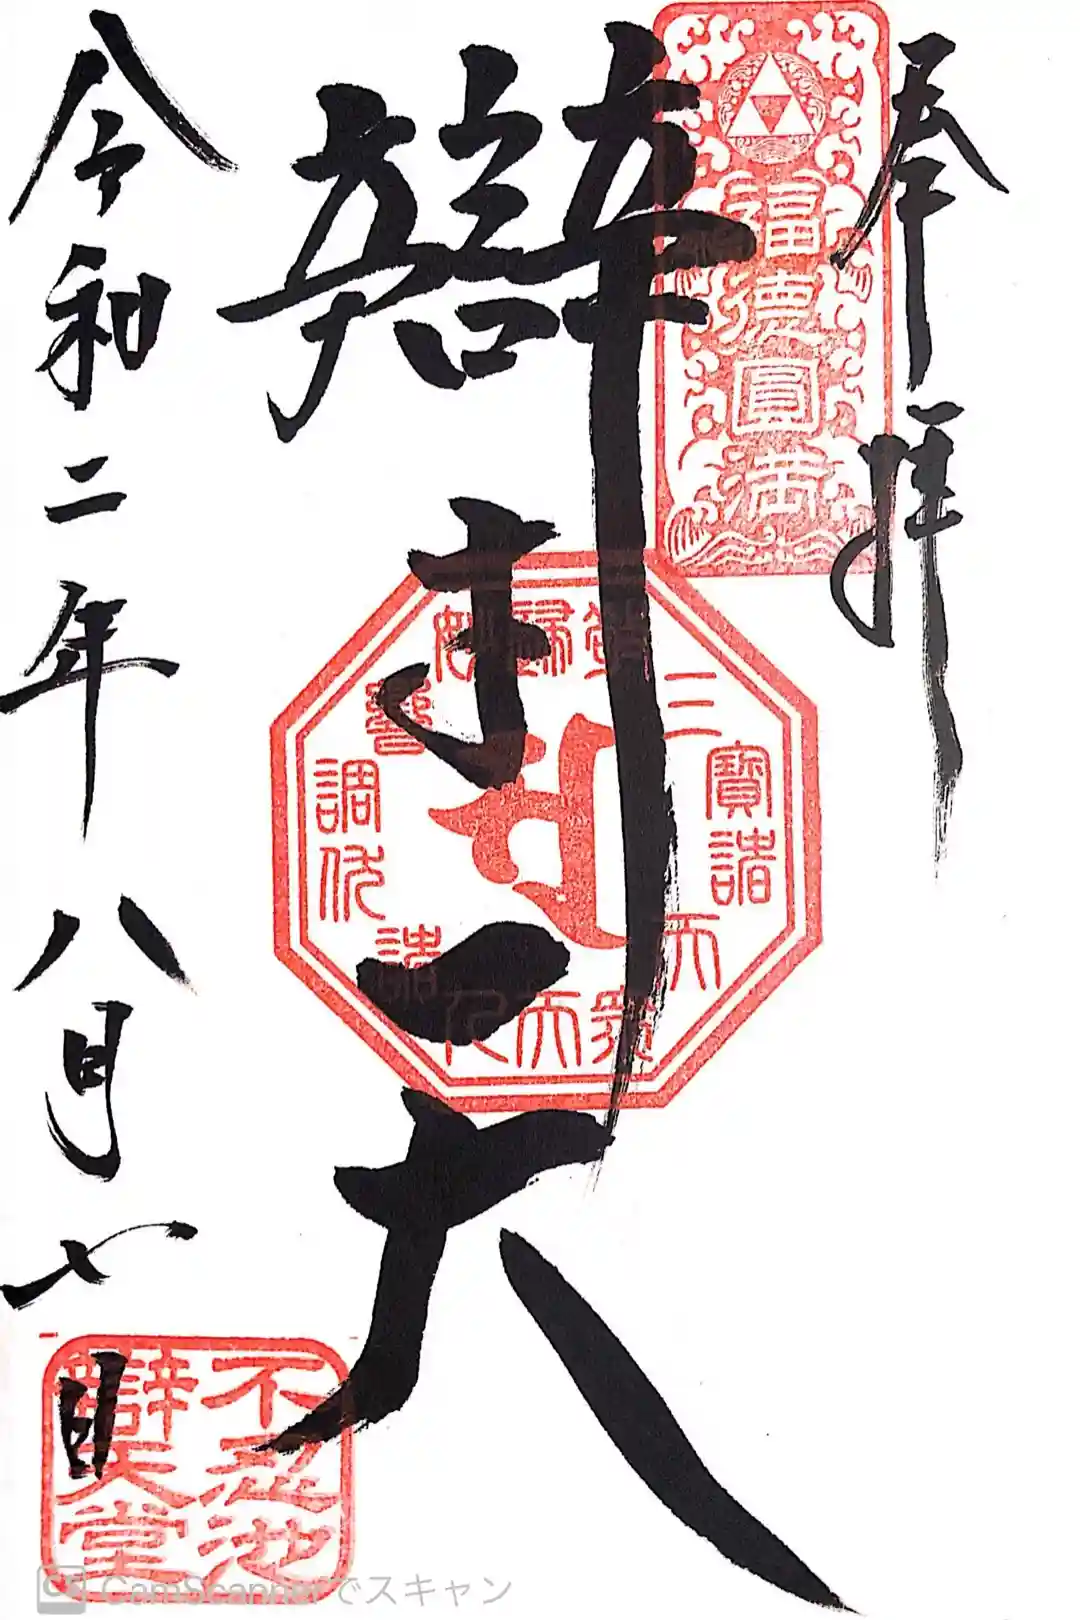 奉拝
福德圓満
辯才天
三寶諸天
令和二年八月七日
不忍池
辯天堂
CS CamScannerでスキャン